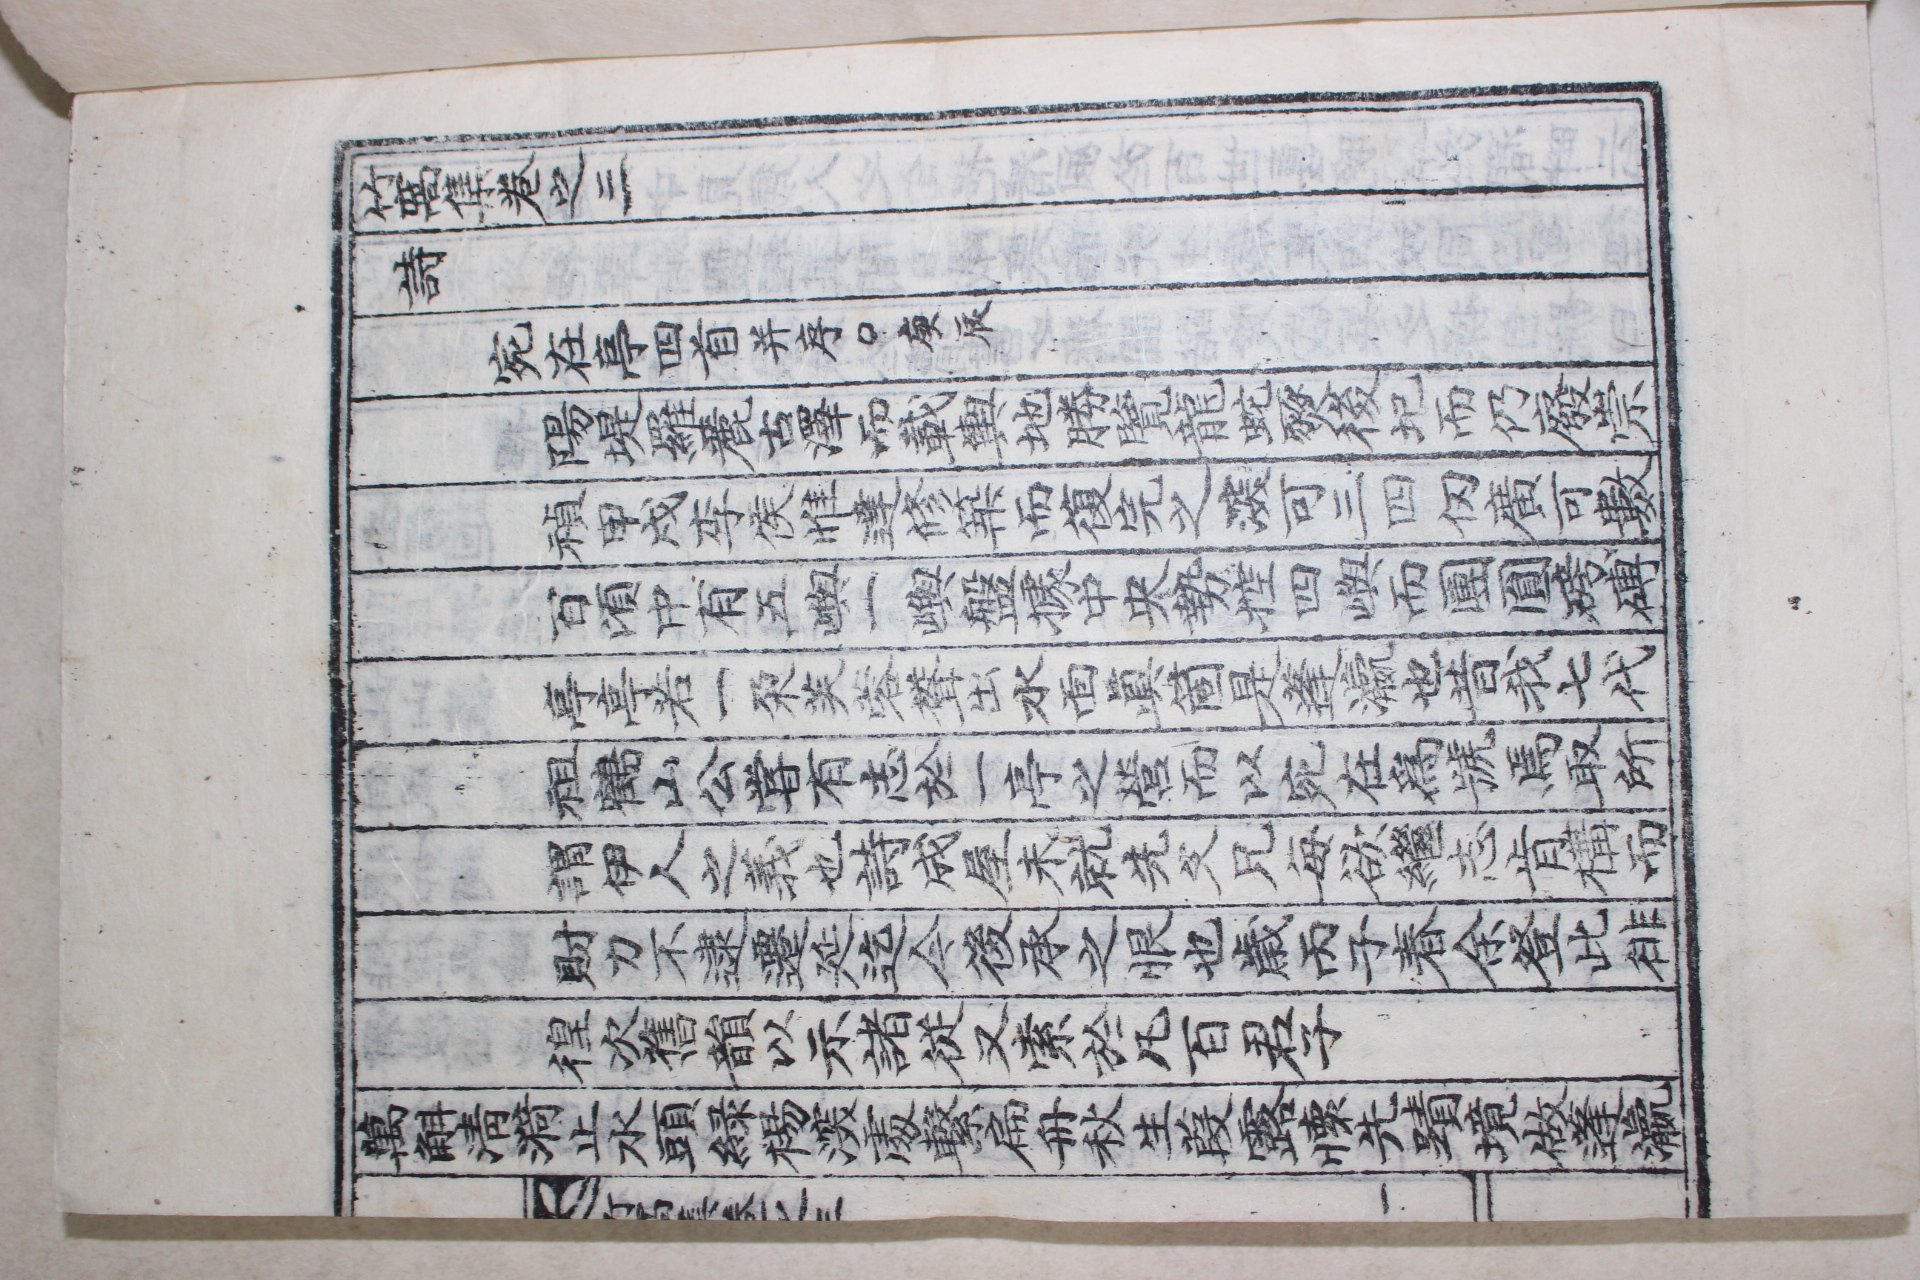 竹窩集卷之三
詩
宛在亭四首并序○庚辰
陽堤羅麗古澤而載輿地勝覽龍蛇燹後圯而仍廢崇
禎甲戌李侯惟達修築而復完之深可三四仞廣可數
百頃中有五嶼一嶼盤據中央勢控四嶼而團圓磅礡
亭亭若一朶芙蓉聳出水面眞箇是蓬瀛也昔我七代
祖鶴山公嘗有志於一亭之營而以宛在爲號焉取所
謂伊人之義也詩成屋未就先父兄每欲繼志肯構而
財力不逮遷延迄今後承之恨也歲丙子春余登此徘
徨次舊韻以示諸從又索於凡百君子
萬斛淸漪止水頭綠楊深處繫扁舟秋生葭露懷先蹟境倣蓬瀛
竹窩集卷之三
一